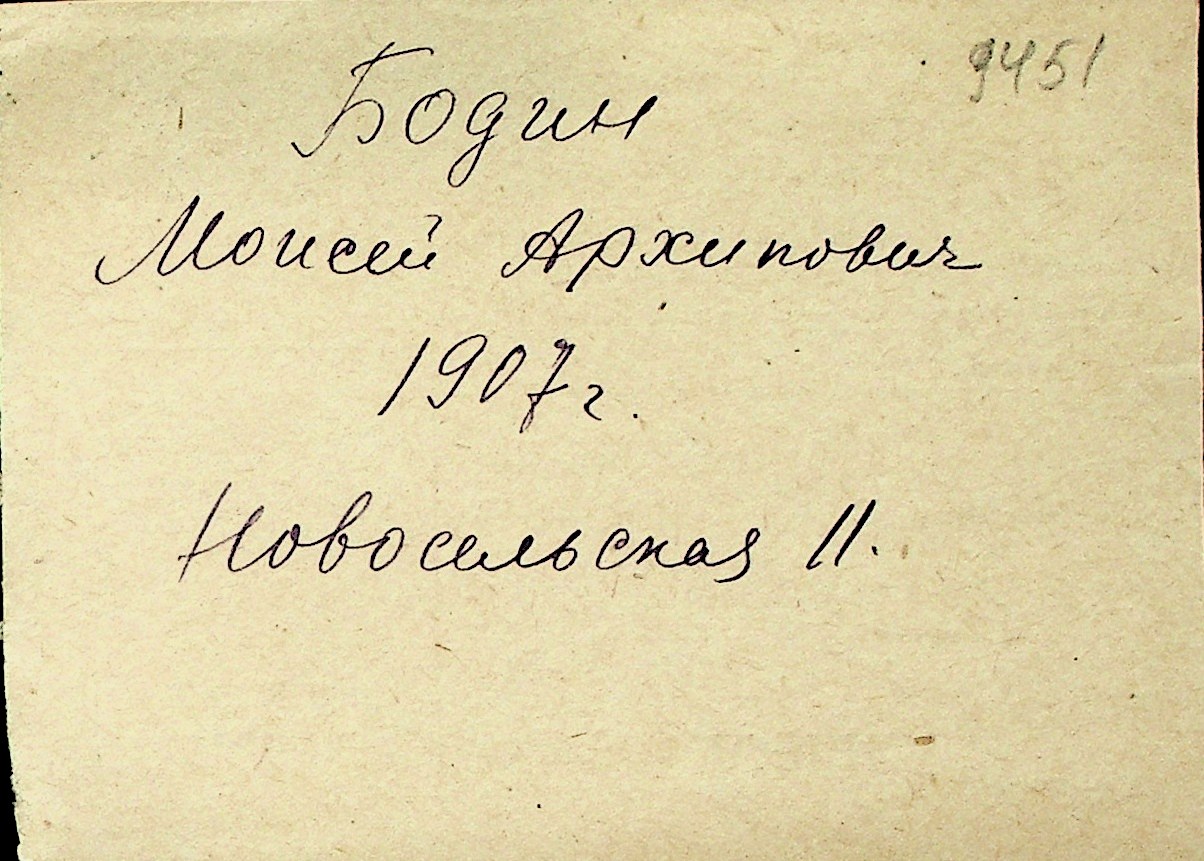 9451
Бодин
Моисей Архипович
1907 г.
Новосельская 11.